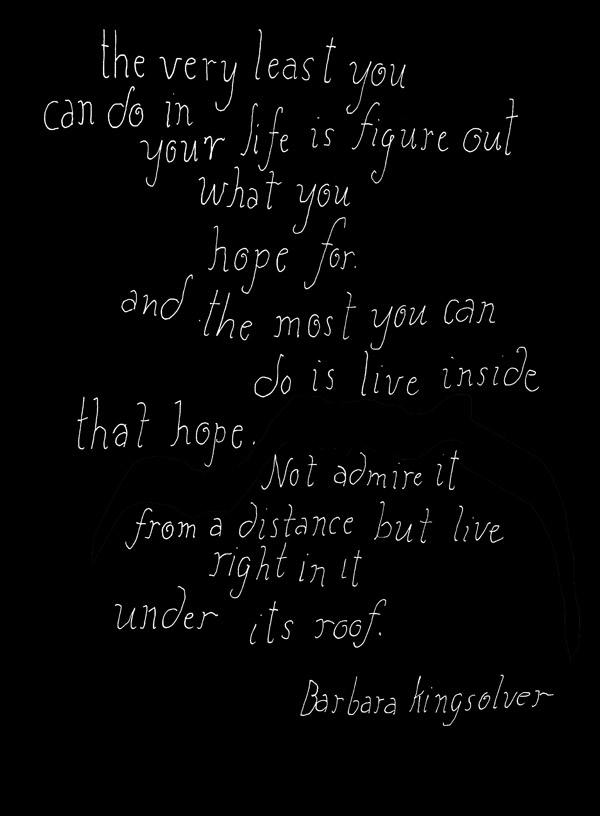 the very least you
can do in
your life is figure out
what you
hope for.
and the most you can
do is live inside
that hope.
Not admire it
from a distance but live
right in it
under its roof.
Barbara kingsolver